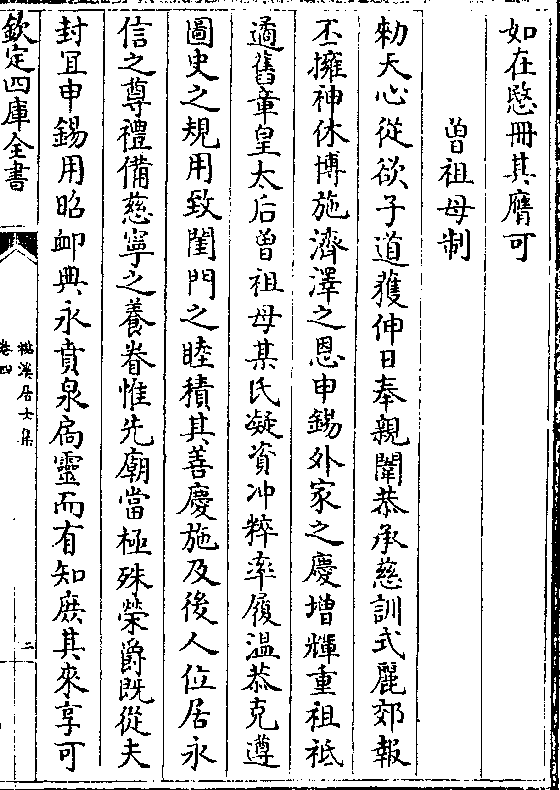 如在愍冊其膺可
曾祖母制
勑天心從欲子道獲伸日奉親闈恭承慈訓式麗郊報
丕擁神休博施濟澤之恩申錫外家之慶增輝重祖祗
遹舊章皇太后曾祖母某氏凝資冲粹率履温恭克遵
圖史之規用致閨門之睦積其善慶施及後人位居永
信之尊禮備慈寧之養眷惟先廟當極殊榮爵既從夫
封冝申錫用昭卹典永賁泉扃靈而有知庶其來享可
欽定四庫全書
卷四
二